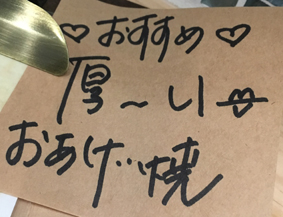 ♡おすすめ♡
厚〜い♡
おあげ焼